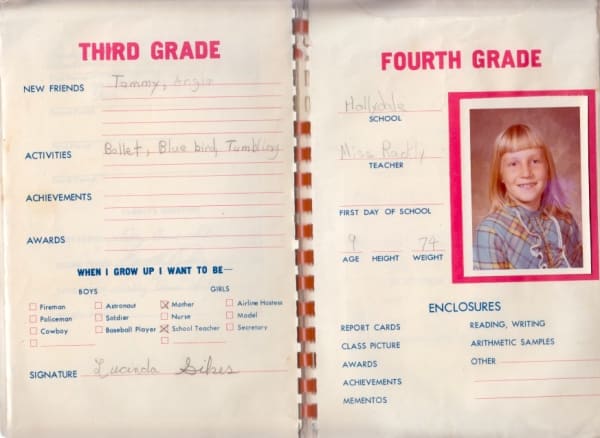 THIRD GRADE
NEW FRIENDS Tammy, Angie
ACTIVITIES Ballet, Blue bird, Tumbling
ACHIEVEMENTS
AWARDS
WHEN I GROW UP I WANT TO BE—
BOYS GIRLS
Fireman Astronaut Mother Airline Hostess
Policeman Soldier Nurse Model
Cowboy Baseball Player School Teacher Secretary
SIGNATURE Lucinda Sikes
FOURTH GRADE
Hollydale
SCHOOL
Miss
TEACHER
FIRST DAY OF SCHOOL
9 74
AGE HEIGHT WEIGHT
ENCLOSURES
REPORT CARDS READING, WRITING
CLASS PICTURE ARITHMETIC SAMPLES
AWARDS OTHER
ACHIEVEMENTS
MEMENTOS